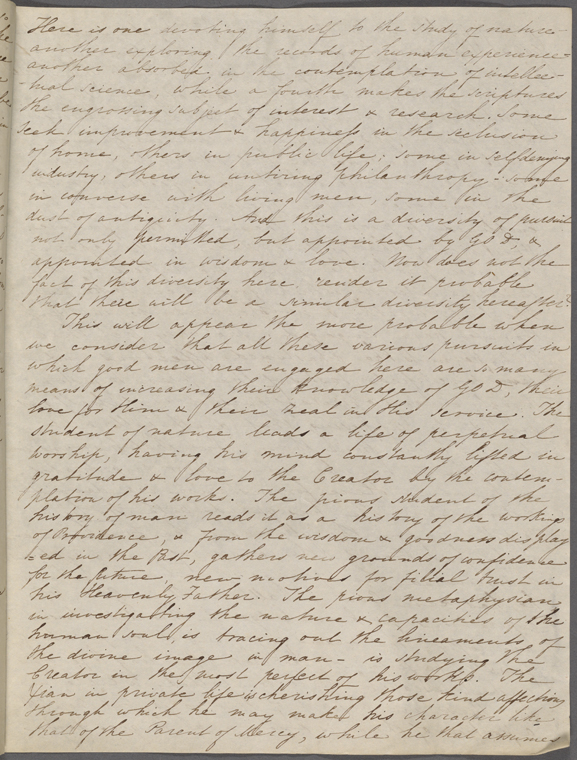 Here is one devoting himself to the study of nature-
another exploring the records of human experience-
another absorbed in the contemplation of intellec-
tual science, while a fourth makes the scriptures
the engrossing subject of interest & research. Some
seek improvement & happiness in the seclusion
of home, others in public life; some in selfdenying
industry, others in untiring philanthropy - some
in converse with living men, some in the
dust of antiquity. And this is a diversity of pursuit
not only permitted, but appointed by GOD &
appointed in wisdom & love. Now does not the
fact of this diversity here render it probable
that there will be a similar diversity hereafter?
This will appear the more probable when
we consider that all these various pursuits in
which good men are engaged here are so many
means of increasing their knowledge of GOD, their
love for Him & their zeal in His service. The
student of nature leads a life of perpetual
worship, having his mind constantly lifted in
gratitude & love to the Creator by the contem-
plation of his works. The pious student of the
history of man reads it as a history of the workings
of Providence, & from the wisdom & goodness display
=ed in the Past, gathers new grounds of confidence
for the future, new motives for filial trust in
his Heavenly Father. The pious metaphysian
in investigating the nature & capacities of the
human soul, is tracing out the lineaments of
the divine image in man - is studying the
Creator in the most perfect of his works. The
Xian in private life is cherishing those kind affections
through which he may make his character like
that of the Parent of Mercy, while he that assumes